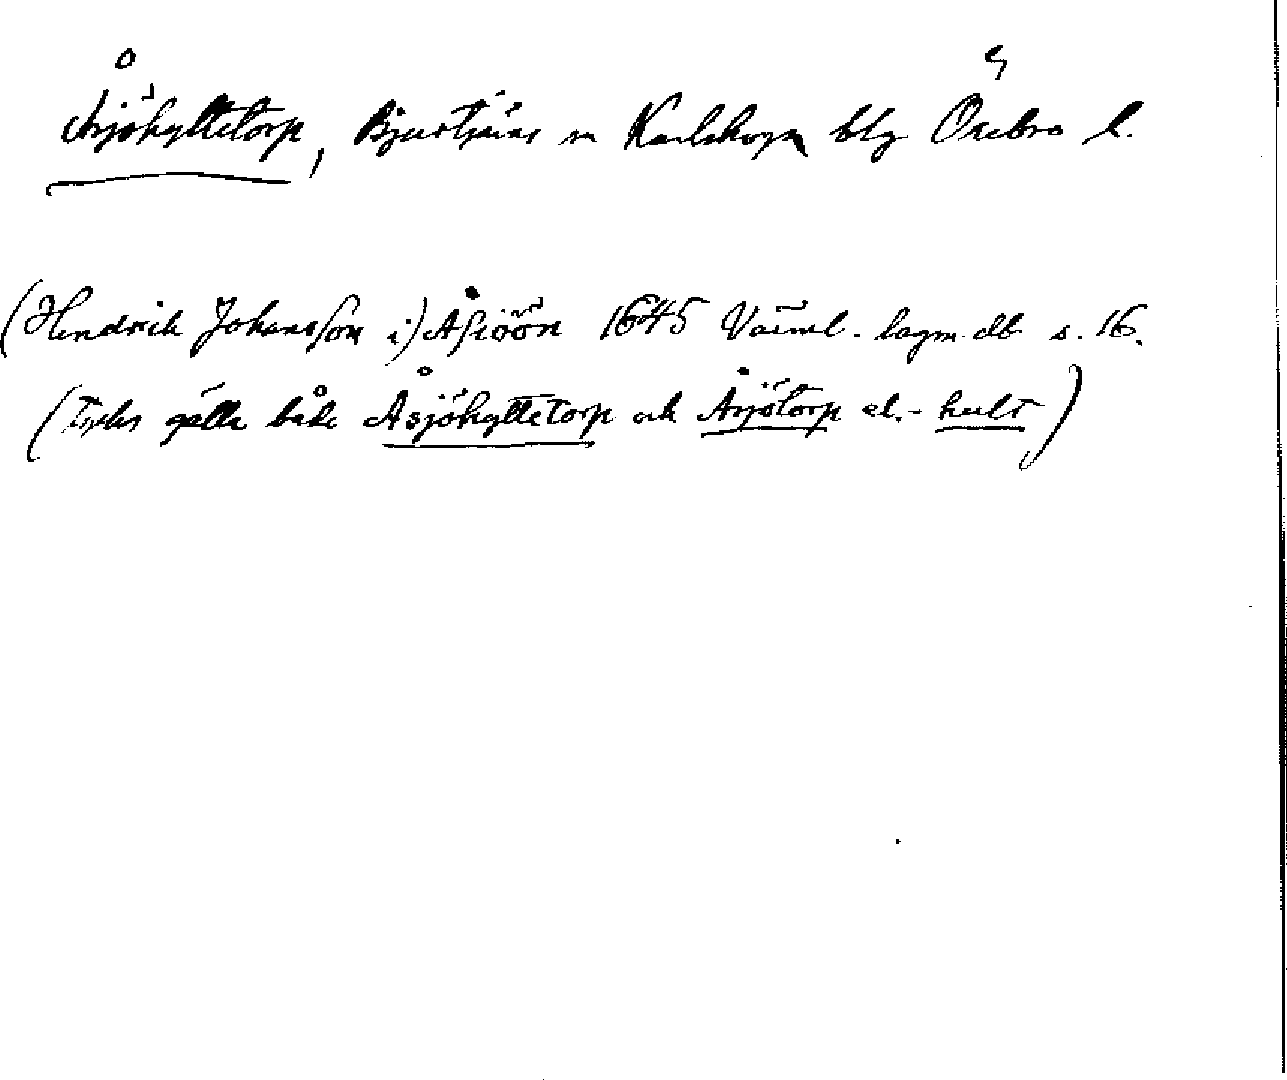 Åsjöhyttetorp, Bjurtjärns sn Karlskoga blg Örebro l.
(Hendrik Johansson i) Åsiöön 1645 Värml. lagm.db s. 16.
(Tycks gälla både Åsjöhyttetorp och Åsjötorp el. -hult)